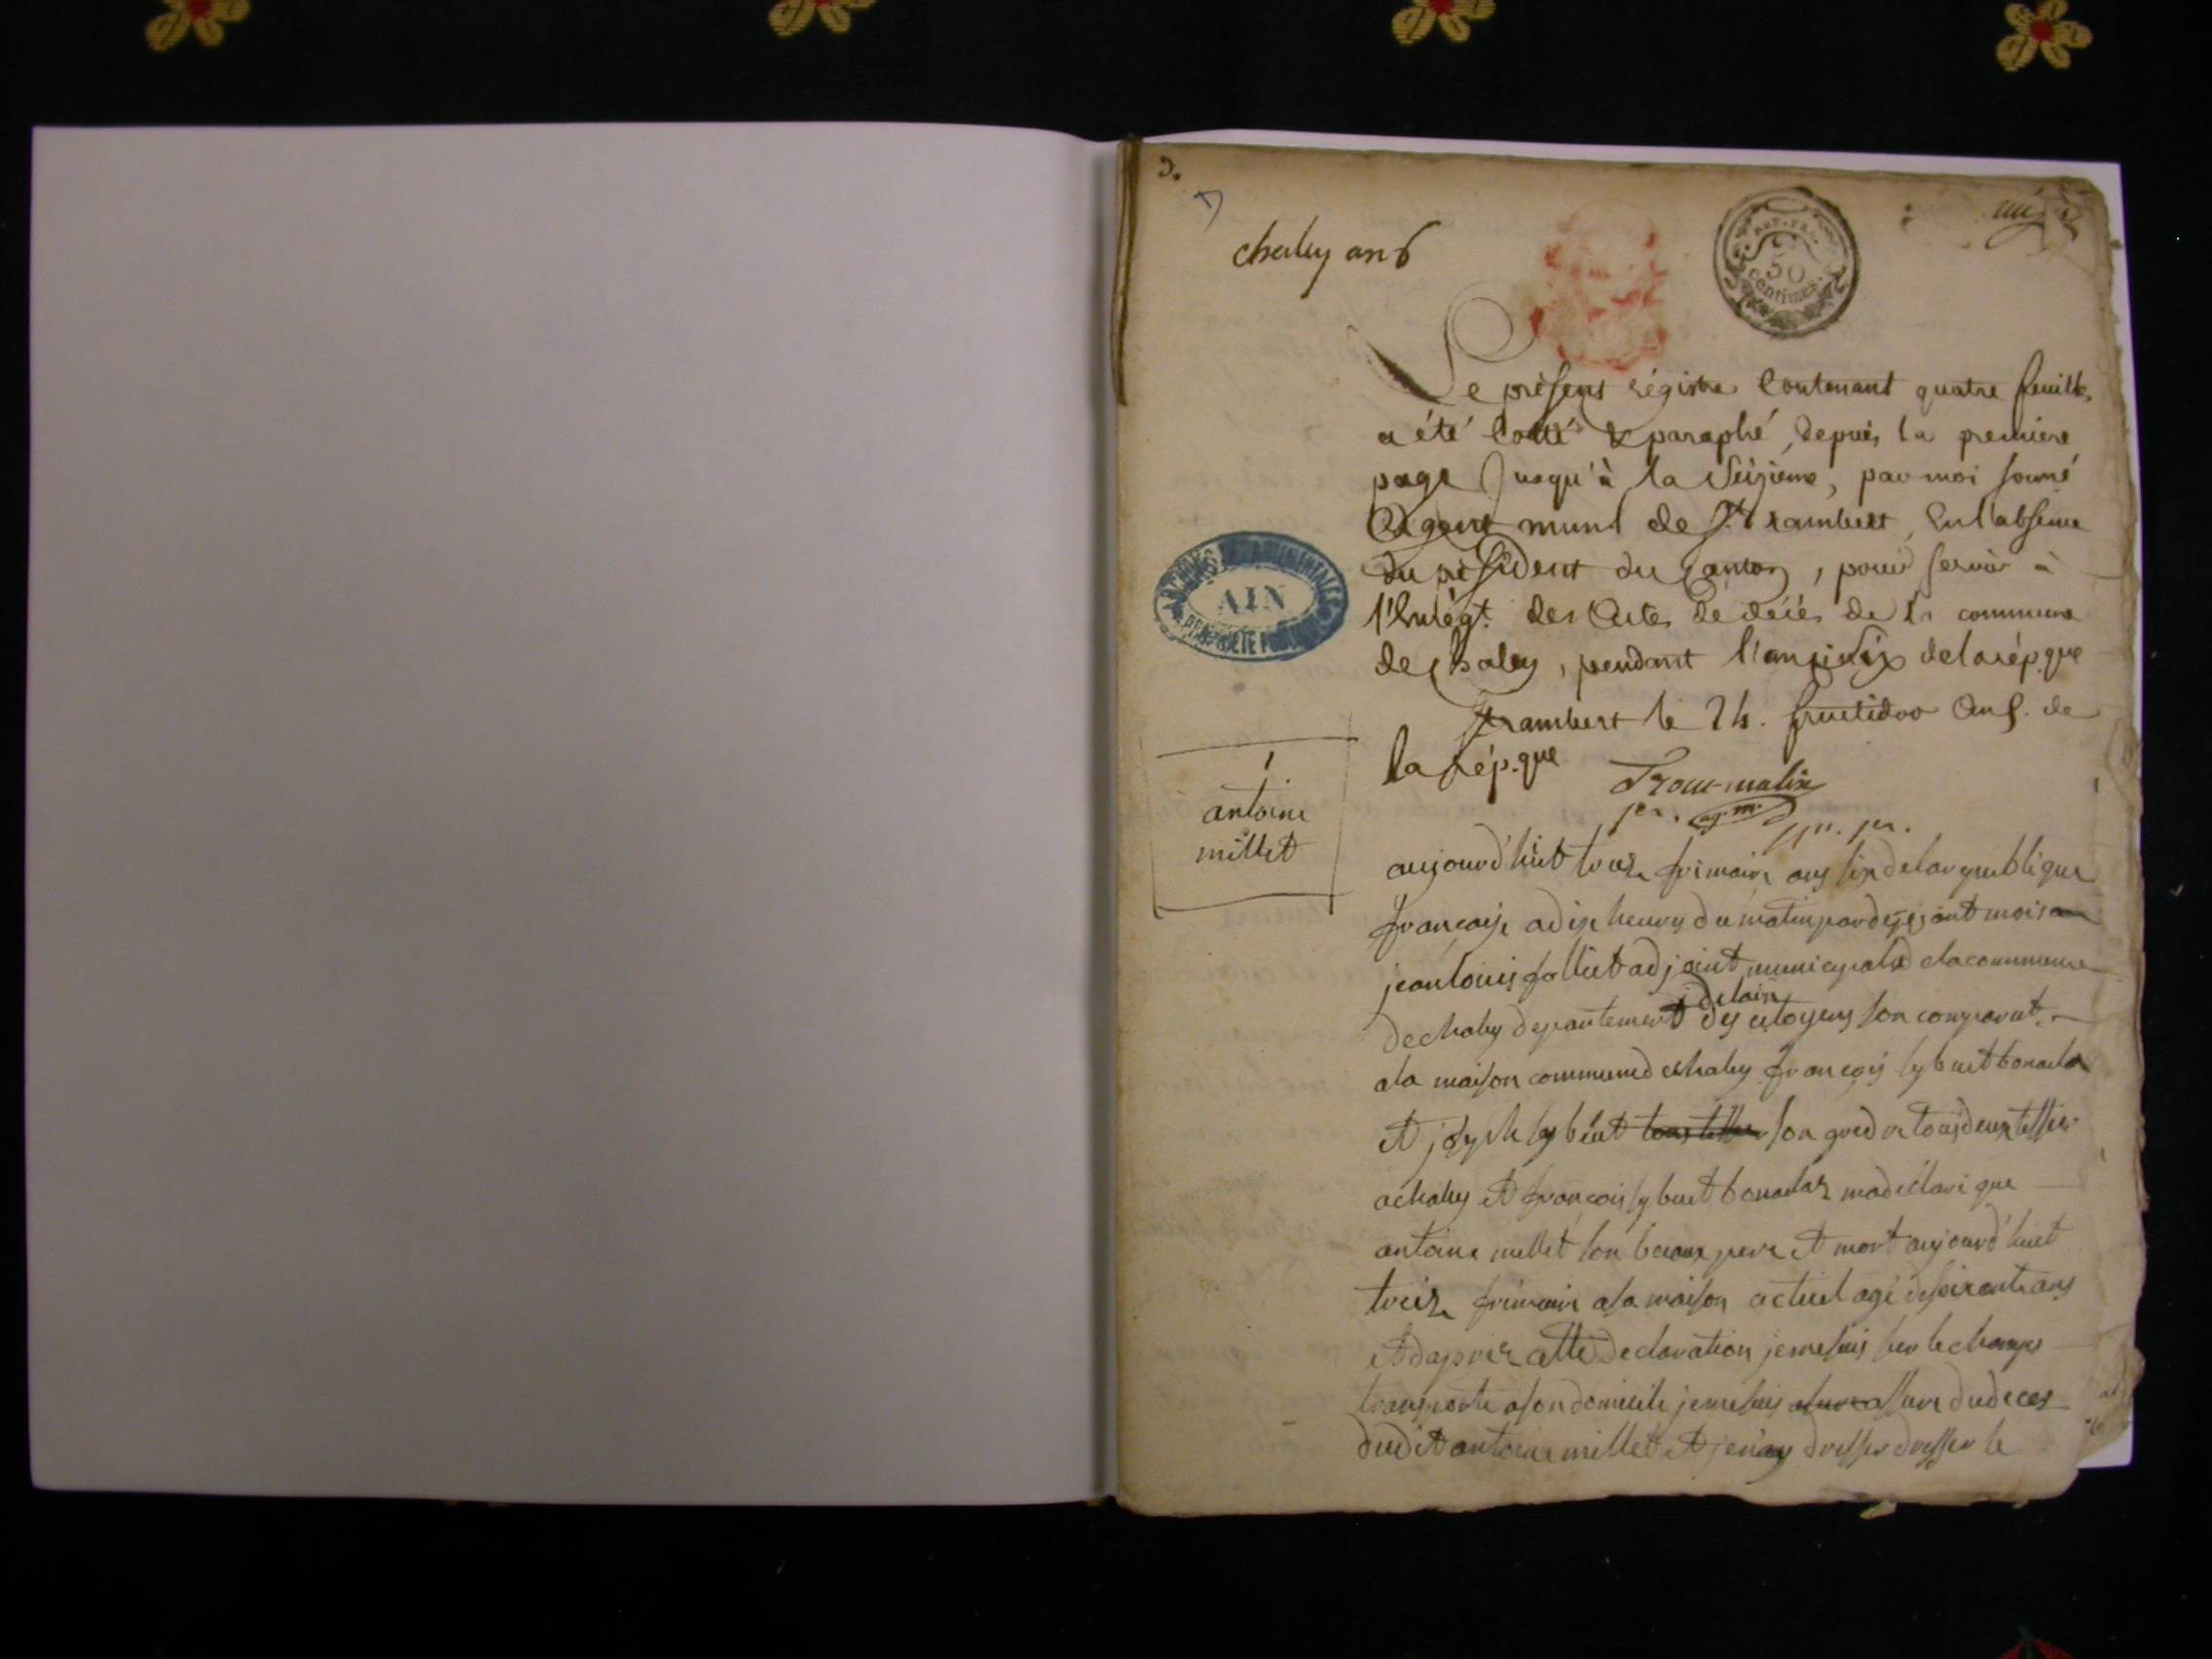 D.
chaley an 6
REP. FRA.
50
Centimes.
Le présent régistre Contenant quatre feuilles
a été Cotté & paraphé, depuis la premiere
page Jusqu'à la Seizieme, par moi soussé
Agent munl de St rambert, En l'absence
du président du Canton, pour servir à
l'Enrégt. des Actes de décès de la commune
de chaley, pendant l'an six de la rép.que
St rambert le 24. fructidor an 5. de
la rép.que
ag. m.
ARCHIVES DÉPARTEMENTALES
AIN
PROPRIÉTÉ PUBLIQUE
1
antoine
millet
aujourd'huit treize frimaire ans six de la republique
francaise a dix heures du matin par
jean louis adjoint municypal de la commune
de chaley departement de lain des citoyens son comparut
a la maison commune de chaley francois
et joseph tous deux tessier
a chaley et francois ma déclare que
antoine millet son beaux pere et mort aujourd'huit
treize frimaire a sa maison actuel agé de soixante ans
et dapres cette declaration je me suis sur le champs
transporte a son domicile je me suis assure du deces
dudit antoine millet et jen ay dresser dresser le